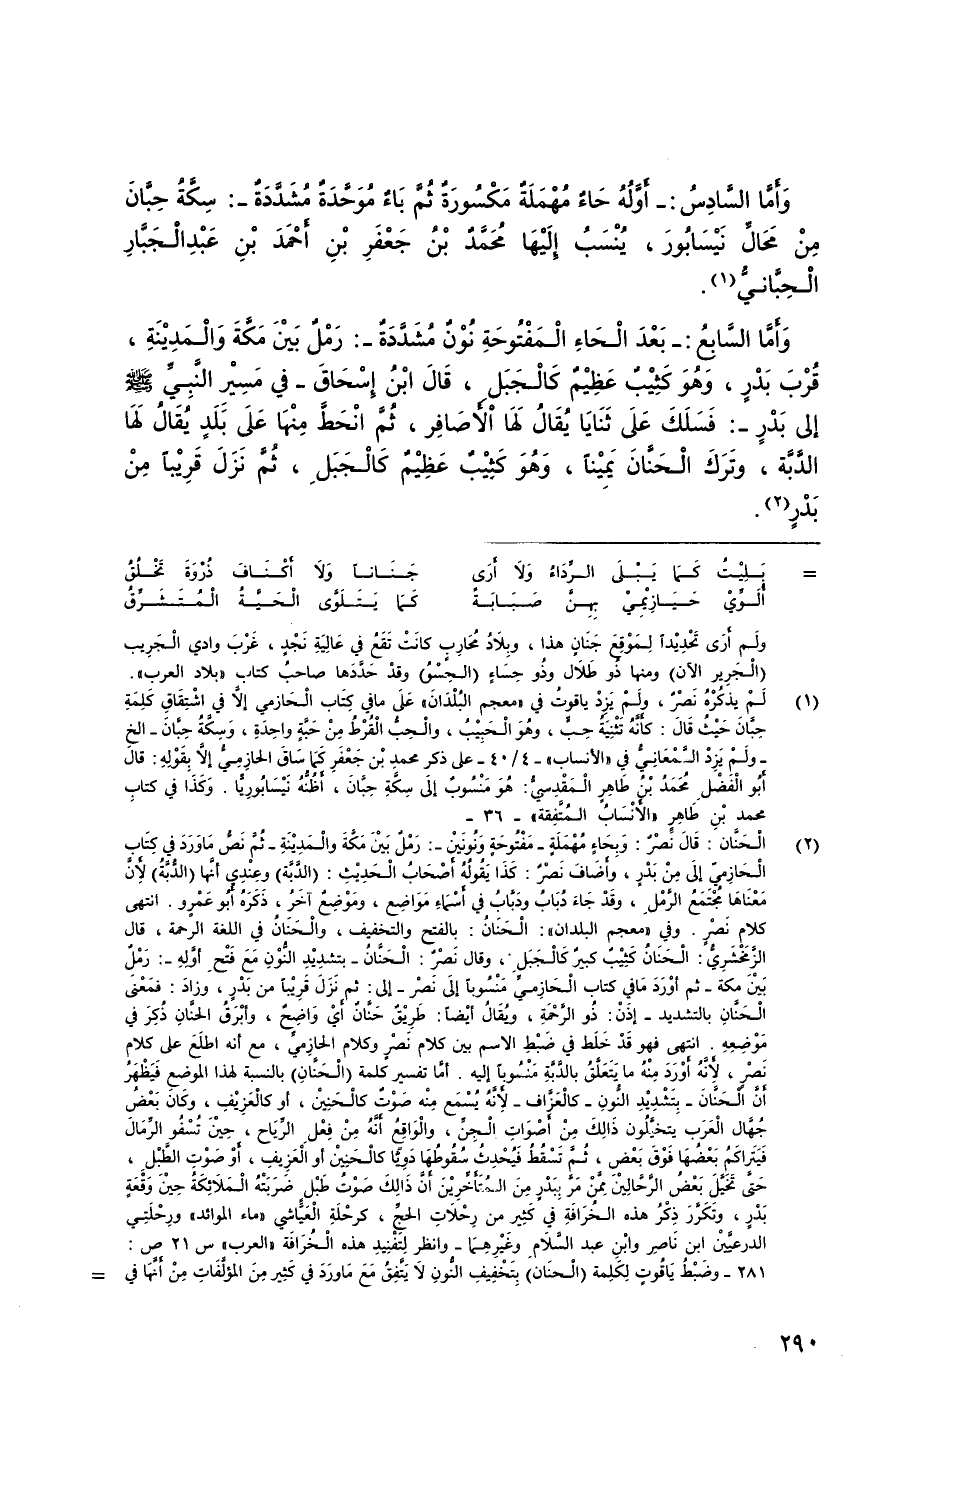 وَأَمَّا السَّادِسُ :ـ أَوَّلُهُ حَاءٌ مُهْمَلَةٌ مَكْسُورَةٌ ثُمَّ بَاءٌ مُوَحَّدَةٌ مُشَدَّدَةٌ ـ: سِكَّةُ حِبَّانَ
مِنْ مَحَالِّ نَيْسَابُورَ ، يُنْسَبُ إِلَيْهَا مُحَمَّدٌ بْنُ جَعْفَرِ بْنِ أَحْمَدَ بْنِ عَبْدِالْـجَبَّارِ
الْـحِبَّانيُّ(١).
وَأَمَّا السَّابِعُ :ـ بَعْدَ الْـحَاءِ الْـمَفْتُوحَةِ نُوْنٌ مُشَدَّدَةٌ ـ: رَمْلٌ بَيْنَ مَكَّةَ وَالْـمَدِيْنَةِ ،
قُرْبَ بَدْرٍ ، وَهُوَ كَثِيْبٌ عَظِيْمٌ كَالْـجَبَلِ ، قَالَ ابْنُ إِسْحَاقَ ـ في مَسِيْرِ النَّبِيِّ ﷺ
إِلى بَدْرٍ ـ: فَسَلَكَ عَلَى ثَنَايَا يُقَالُ لَهَا الْأَصَافِرِ ، ثُمَّ انْحَطَّ مِنْهَا عَلَى بَلَدٍ يُقَالُ لَهَا
الدَّبَّة ، وتَرَكَ الْـحَنَّانَ يَمِيْناً ، وَهُوَ كَثِيْبٌ عَظِيْمٌ كَالْـجَبَلِ ، ثُمَّ نَزَلَ قَرِيْباً مِنْ
بَدْرٍ(٢).
= بَـلِيْتُ كَـمَا يَـبْـلَى الـرِّدَاءُ وَلَا أَرَى جَـنَـانـاً وَلَا أَكْـنَـافَ ذُرْوَةَ تَخْـلُقُ
أُلَـوِّيْ حَـيَـازِيْمِيْ بِهِـنَّ صَـبَـابَـةً كَـمَا يَـتَـلَوَّى الْـحَيَّـةُ الْـمُـتَـشَـرِّقُ
ولَـم أَرَى تَحْدِيْداً لِـمَوْقِعَ جَنَانٍ هذا ، وبِلاَدُ مُحَارِبٍ كانَتْ تَقَعُ في عَالِيَةِ نَجْدٍ ، غَرْبَ وادي الْـجَرِيب
(الْـجَرير الآن) ومنها ذُو طَلَال وذُو حِسَاءٍ (الـحِسْوُ) وقدْ حَدَّدَها صاحبُ كتاب «بلاد العرب».
(١) لَـمْ يذكُرْهُ نَصْرٌ ، ولَـمْ يَزِدْ ياقوتُ في «معجم البُلْدَان» عَلَى مافي كِتَاب الْـحَازِمي إلَّا في اشْتِقَاقِ كَلِمَةِ
حِبَّان حَيْثُ قال : كأَنَّهُ تَثْنِيَةُ حِبٍّ ، وهُوَ الْـحَبِيْبُ ، والْـحِبُّ الْقُرْطُ مِنْ حَبَّةٍ واحِدَةٍ ، وَسِكَّةُ حِبَّان ـ الخ
ـ ولَـمْ يَزِدْ السَّمْعَانيُّ في «الأنساب» ـ ٤٠/٤ ـ على ذكر محمدٍ بْنِ جَعْفَرٍ كَمَا سَاقَ الحازِمِيُّ إلَّا بِقَوْلِهِ: قَالَ
أَبُو الْفَضْلِ مُحَمَّدُ بْنُ طَاهِرٍ الْـمَقْدِسِيُّ: هُوَ مَنْسُوبٌ إلَى سِكَّةِ حِبَّانَ ، أَظُنُّهُ نَيْسَابُوريًّا . وَكَذَا في كتابِ
محمد بْنِ طَاهِرٍ «الأَنْسَابُ الـمُتَّفِقة» ـ ٣٦ ـ
(٢) الْـحَنَّان : قَالَ نَصْرٌ : وَبِحَاءٍ مُهْمَلَةٍ ـ مَفْتُوحَةٍ وَنُونَيْنِ ـ: رَمْلٌ بَيْنَ مَكَّةَ والْـمَدِيْنَةِ ـ ثُمَّ نَصُّ مَاوَرَدَ في كِتَابِ
الْـحَازِمِيّ إلَى مِنْ بَدْرٍ ، وَأَضَافَ نَصْرٌ : كَذَا يَقُولُهُ أَصْحَابُ الْـحَدِيْثِ : (الدَّبَّة) وعِنْدِي أنَّها (الدُّبَّةُ) لِأَنَّ
مَعْنَاهَا مُجْتَمَعُ الرَّمْلِ ، وَقَدْ جَاءَ دُبَابٌ ودَبَّابٌ في أَسْمَاءِ مَوَاضِعٍ ، ومَوْضِعٍ آخَرَ ، ذَكَرَهُ أَبُو عَمْرٍو . انتهى
كلام نَصْرٍ . وفي «معجم البلدان»: الْـحَنَانُ : بالفَتح والتخفيف ، والْـحَنَانُ في اللغة الرحمة ، قال
الزَّمَخْشَرِيُّ : الْـحَنَانُ كَثِيْبٌ كبيرٌ كالْـجَبَلِ ، وقال نَصْرٌ : الْـحَنَّانُ ـ بتشديدِ النُّوْنِ مَعَ فَتْحِ أَوَّلِهِ ـ: رَمْلٌ
بَيْنَ مكة ـ ثم أوْرَدَ مَافي كتاب الْـحَازِميِّ مَنْسُوباً إلَى نَصْرٍ ـ إلى: ثم نَزَلَ قَرِيْباً من بَدْرٍ ، وزاد : فَمَعْنَى
الْـحَنَّانِ بالتشديد ـ إذَنْ: ذو الرَّحْمَةِ ، ويُقَالُ أَيْضاً: طَرِيْقٌ حَنَّانٌ أَيْ وَاضِحٌ ، وأَبْرَقُ الحَنَّانِ ذُكِرَ في
مَوْضِعِهِ . انتهى فهو قَدْ خَلَطَ في ضَبْطِ الاسم بين كلامِ نَصْرٍ وكلامِ الحازِمِيِّ ، مع أنه اطلَعَ على كلام
نَصْرٍ ، لِأَنَّهُ أَوْرَدَ مِنْهُ ما يَتَعَلَّقُ بالدَّبَّةِ مَنْسُوباً إليه . أمَّا تفسير كلمة (الْـحَنَّان) بالنسبة لهذا الموضعِ فَيَظْهَرُ
أَنَّ الْـحَنَّانَ ـ بِتَشْدِيْدِ النُّونِ ـ كالعَزَّاف ـ لِأَنَّهُ يُسْمَع مِنْه صَوْتٌ كالْـحَنِيْنِ ، أو كالْعَزِيْفِ ، وكَانَ بَعْضُ
جُهَّالِ الْعَرَبِ يتخيَّلُون ذَالِكَ مِنْ أَصْوَاتِ الْـجِنِّ ، والْوَاقِعُ أنَّهُ مِنْ فِعْلِ الرِّيَاحِ ، حِيْنَ تَسْفُو الرِّمَالَ
فَيَتَرَاكَمُ بَعْضُهَا فَوْقَ بَعْضٍ ، ثُـمَّ تَسْقُطُ فَيُحْدِثُ سُقُوطُهَا دَوِيًّا كالْـحَنِيْنِ أو الْعَزِيفِ ، أَوْ صَوْتِ الطَّبْلِ ،
حَتَّى تَخَيَّلَ بَعْضُ الرَّحَالِيْنَ مِمَّنْ مَرَّ بِبَدْرٍ مِنَ الـمُتَأَخِّرِيْنَ أَنَّ ذَالِكَ صَوْتُ طَبْلٍ ضَرَبَتْهُ الْـمَلاَئِكَةُ حِينَ وَقْعَةِ
بَدْرٍ ، وتَكَرَّرَ ذِكْرُ هذه الْـخُرَافَةِ في كَثِيرٍ من رِحْلَاتِ الحَجِّ ، كرحْلَةِ الْعَيَّاشي «ماء الموائد» ورِحْلَتِـي
الدرعِيَّيْنِ ابن ناصرٍ وابْنِ عبد السَّلَامِ وغَيْرِهِـمَا ـ وانظر لِتَفْنِيدِ هذه الْـخُرَافَةِ «العرب» س ٢١ ص :
٢٨١ ـ وضَبْطُ يَاقُوتٍ لِكَلِمة (الْـحَنَان) بِتَخْفِيفِ النُّونِ لَا يَتَّفِقُ مَعَ مَاوَرَدَ في كَثِيرٍ مِنَ المُؤَلَّفَاتِ مِنْ أَنَّهَا في =
٢٩٠